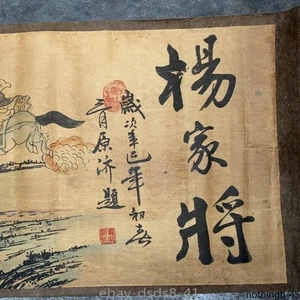 楊家將
歲次辛巳年初春
三月原濟題
ebay-dsds8-41
nothingb